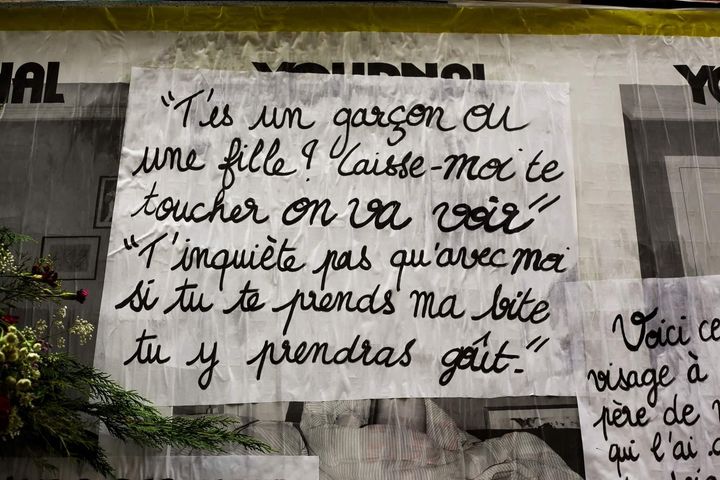 NAL
YOURNAL
YO
"T'es un garçon ou
une fille? Laisse-moi te
toucher on va voir"
"T'inquiète pas qu'avec moi
si tu te prends ma bite
tu y prendras goût."
Voici ce
visage à
père de
qui l'ai